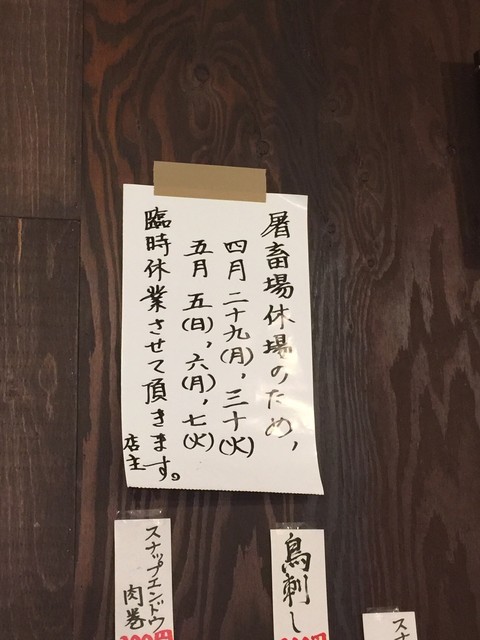 屠畜場休場のため、
四月 二十九(月)、三十(火)
五月 五(日)、六(月)、七(火)
臨時休業させて頂きます。
店主
鳥刺し
スナップエンドウ
肉巻
ス